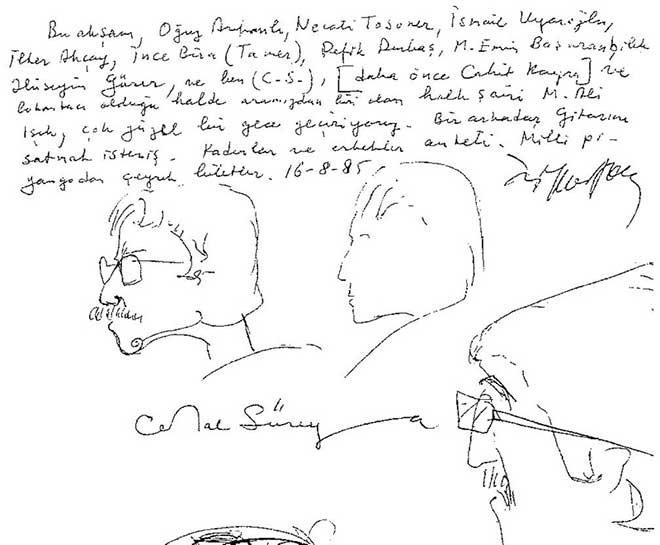 Bu akşam, Oğuz Necati Tosuner, İsmail Uyaroğlu,
İlker Akçay, İnce Bira (Taner), Refik Durbaş, M. Emin
Hüseyin Gürer, ve ben (C.S.), [daha önce Cahit Kayra] ve
lokantacı olduğu halde aramızdan biri olan halk şairi M. Ali
Işık, çok güzel bir gece geçiriyoruz. Bir arkadaş Gitarını
satmak istemiş. Kadınlar ve erkekler anketi. Milli pi-
yangodan çeyrek biletler. 16-8-85
Cemal Süreya